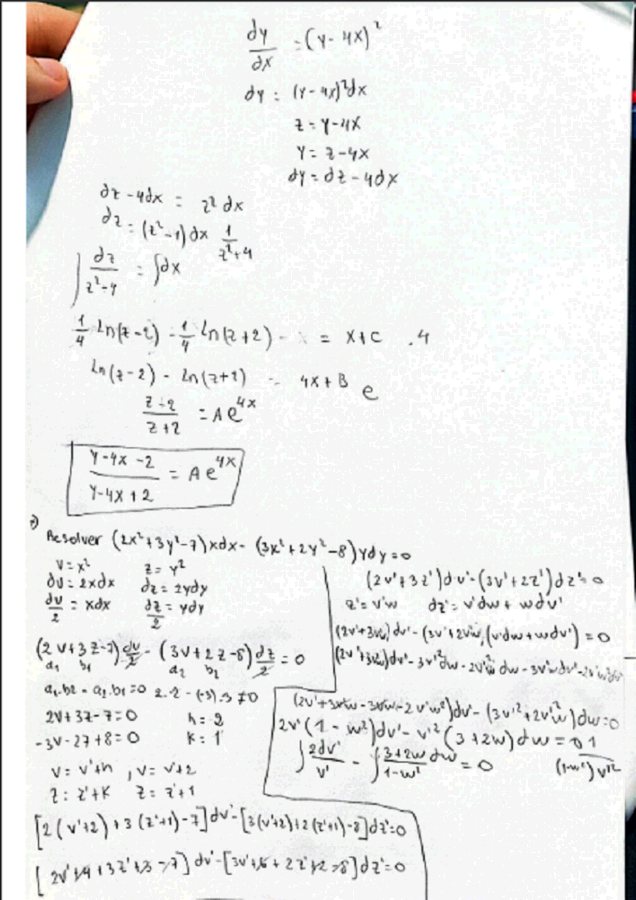 dy/dx = (y-4x)²
dy = (y-4x)²dx
z = y-4x
y = z-4x
dy = dz-4dx
dz-4dx = z² dx
dz = (z²-1)dx 1/z²+4
∫ dz/z²-4 = ∫dx
1/4 Ln(z-2) - 1/4 Ln(z+2) - = x+c .4
Ln(z-2) - Ln(z+2) = 4x+B e
z-2/z+2 = Ae^4x
y-4x-2/y-4x+2 = Ae^4x
Resolver (2x²+3y²-7)xdx - (3x²+2y²-8)ydy=0
v=x² z=y²
dv=2xdx dz=2ydy
dv/2 = xdx dz/2 = ydy
(2v+3z-7)dv/2 - (3v+2z-8)dz/2 = 0
a₁ b₁ a₂ b₂
a₁.b2 - a₂.b₁=0 2.2-(-3).3≠0
2v+3z-7=0 h=2
-3v-2z+8=0 k=1
v=v'+h, v=v'+2
z=z'+k z=z'+1
[2(v'+2)+3(z'+1)-7]dv'-[3(v'+2)+2(z'+1)-8]dz'=0
[2v'+4+3z'+3-7]dv'-[3v'+6+2z'+2-8]dz'=0
(2v'+3z')dv'-(3v'+2z')dz'=0
z'=v'w dz'=v'dw+wdv'
(2v'+3v'w)dv'-(3v'+2v'w)(v'dw+wdv')=0
(2v'+3v'w)dv'-3v'²dw-2v'²w dw-3v'wdv'-2v'w²dv'
(2v'+3v'w-3v'w-2v'w²)dv'-(3v'²+2v'²w)dw=0
2v'(1-w²)dv'-v'²(3+2w)dw=0 1/(1-w²)v'²
∫2dv'/v' - ∫3+2w/1-w² dw = 0